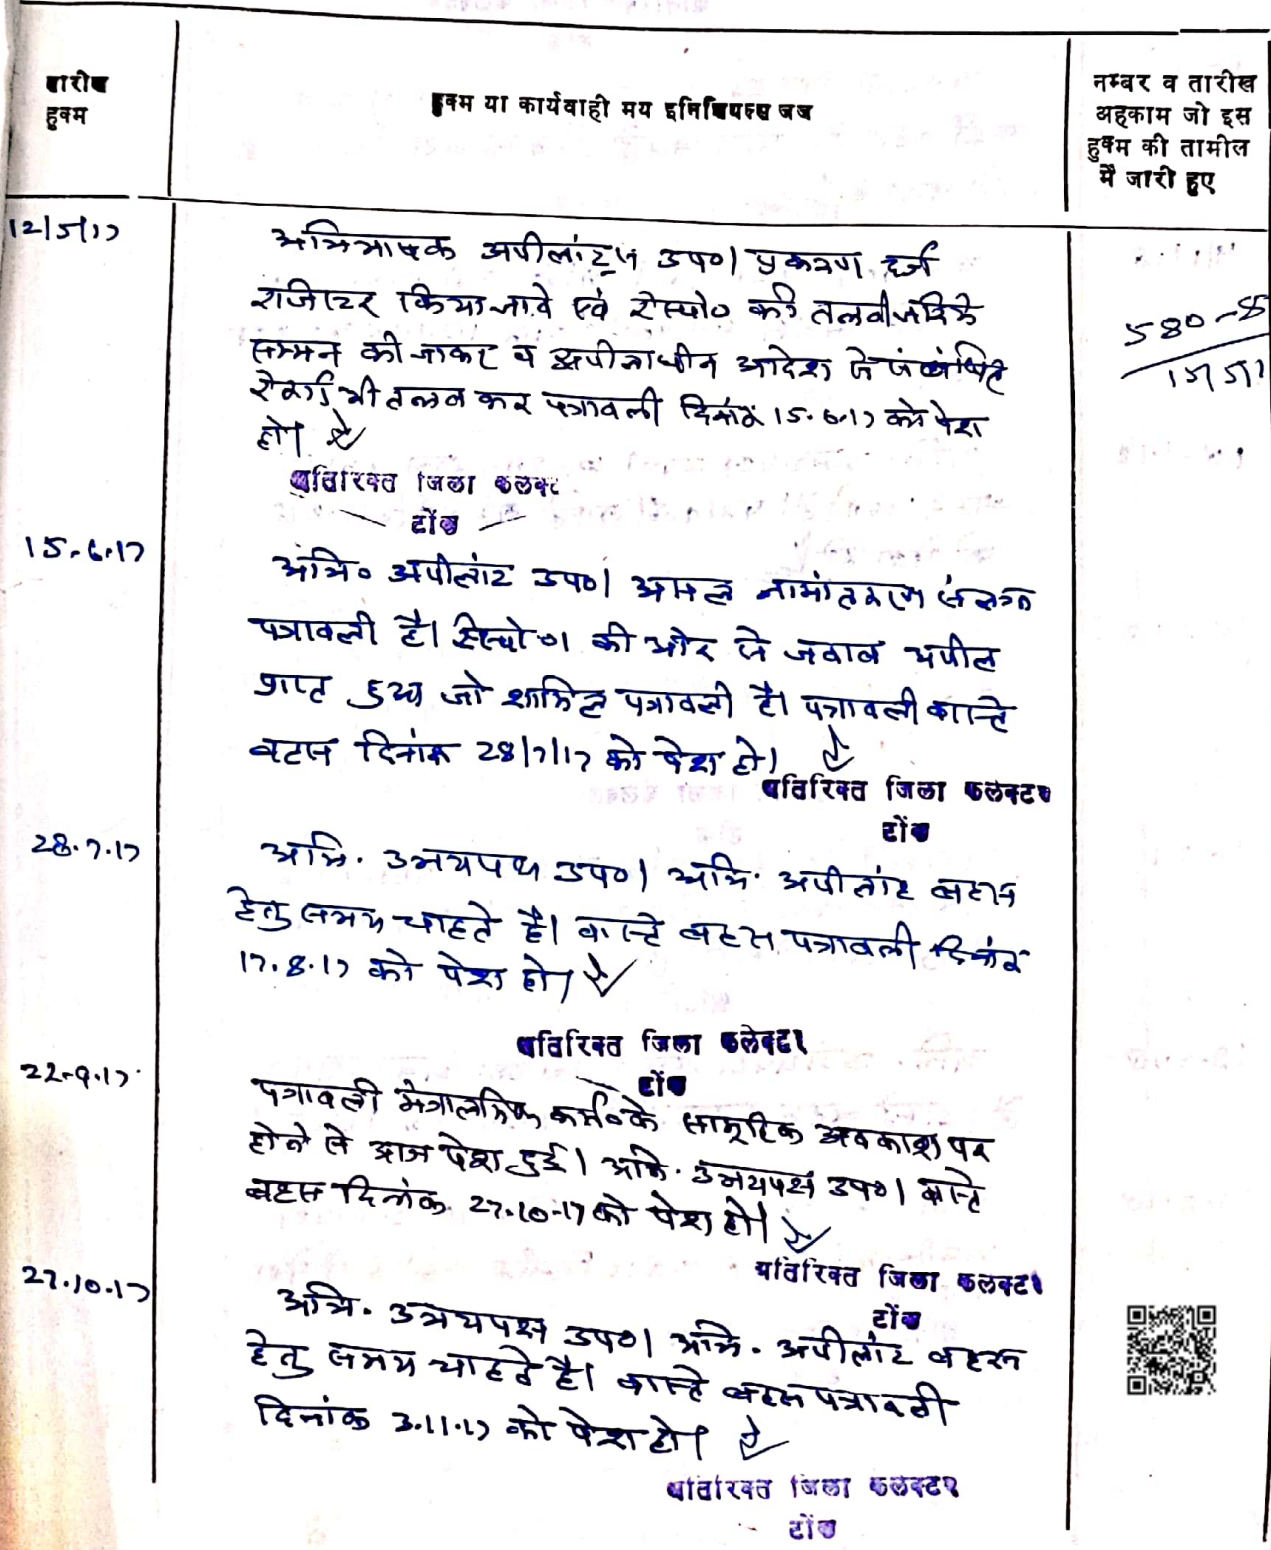 तारीख
हुक्म
हुक्म या कार्यवाही मय इनिशियल्स जज
नम्बर व तारीख
अहकाम जो इस
हुक्म की तामील
में जारी हुए
12/5/17
अभिभाषक अपीलांट्स उप०। प्रकरण दर्ज
रजिस्टर किया जावे एवं रेस्पो० की तलबी जरिये
सम्मन की जाकर व अपीलाधीन आदेश से संबंधित
रेकार्ड भी तलब कर पत्रावली दिनांक 15.6.17 को पेश
हो।
580-85
15/5/1
अतिरिक्त जिला कलक्टर
टोंक
15.6.17
अभि० अपीलांट उप०। असल नामांतकरण संलग्न
पत्रावली है। रेस्पो०1 की ओर से जवाब अपील
प्राप्त हुआ जो शामिल पत्रावली है। पत्रावली वास्ते
बहस दिनांक 28/7/17 को पेश हो।
अतिरिक्त जिला कलक्टर
टोंक
28.7.17
अभि. उभयपक्ष उप०। अभि. अपीलांट बहस
हेतु समय चाहते है। वास्ते बहस पत्रावली दिनांक
17.8.17 को पेश हो।
अतिरिक्त जिला कलेक्टर
टोंक
22.9.17
पत्रावली मंत्रालयिक कर्म० के सामूहिक अवकाश पर
होने से आज पेश हुई। अभि. उभयपक्ष उप०। वास्ते
बहस दिनांक 27.10.17 को पेश हो।
अतिरिक्त जिला कलक्टर
टोंक
27.10.17
अभि. उभयपक्ष उप०। अभि. अपीलांट बहस
हेतु समय चाहते है। वास्ते बहस पत्रावली
दिनांक 3.11.17 को पेश हो।
अतिरिक्त जिला कलक्टर
टोंक